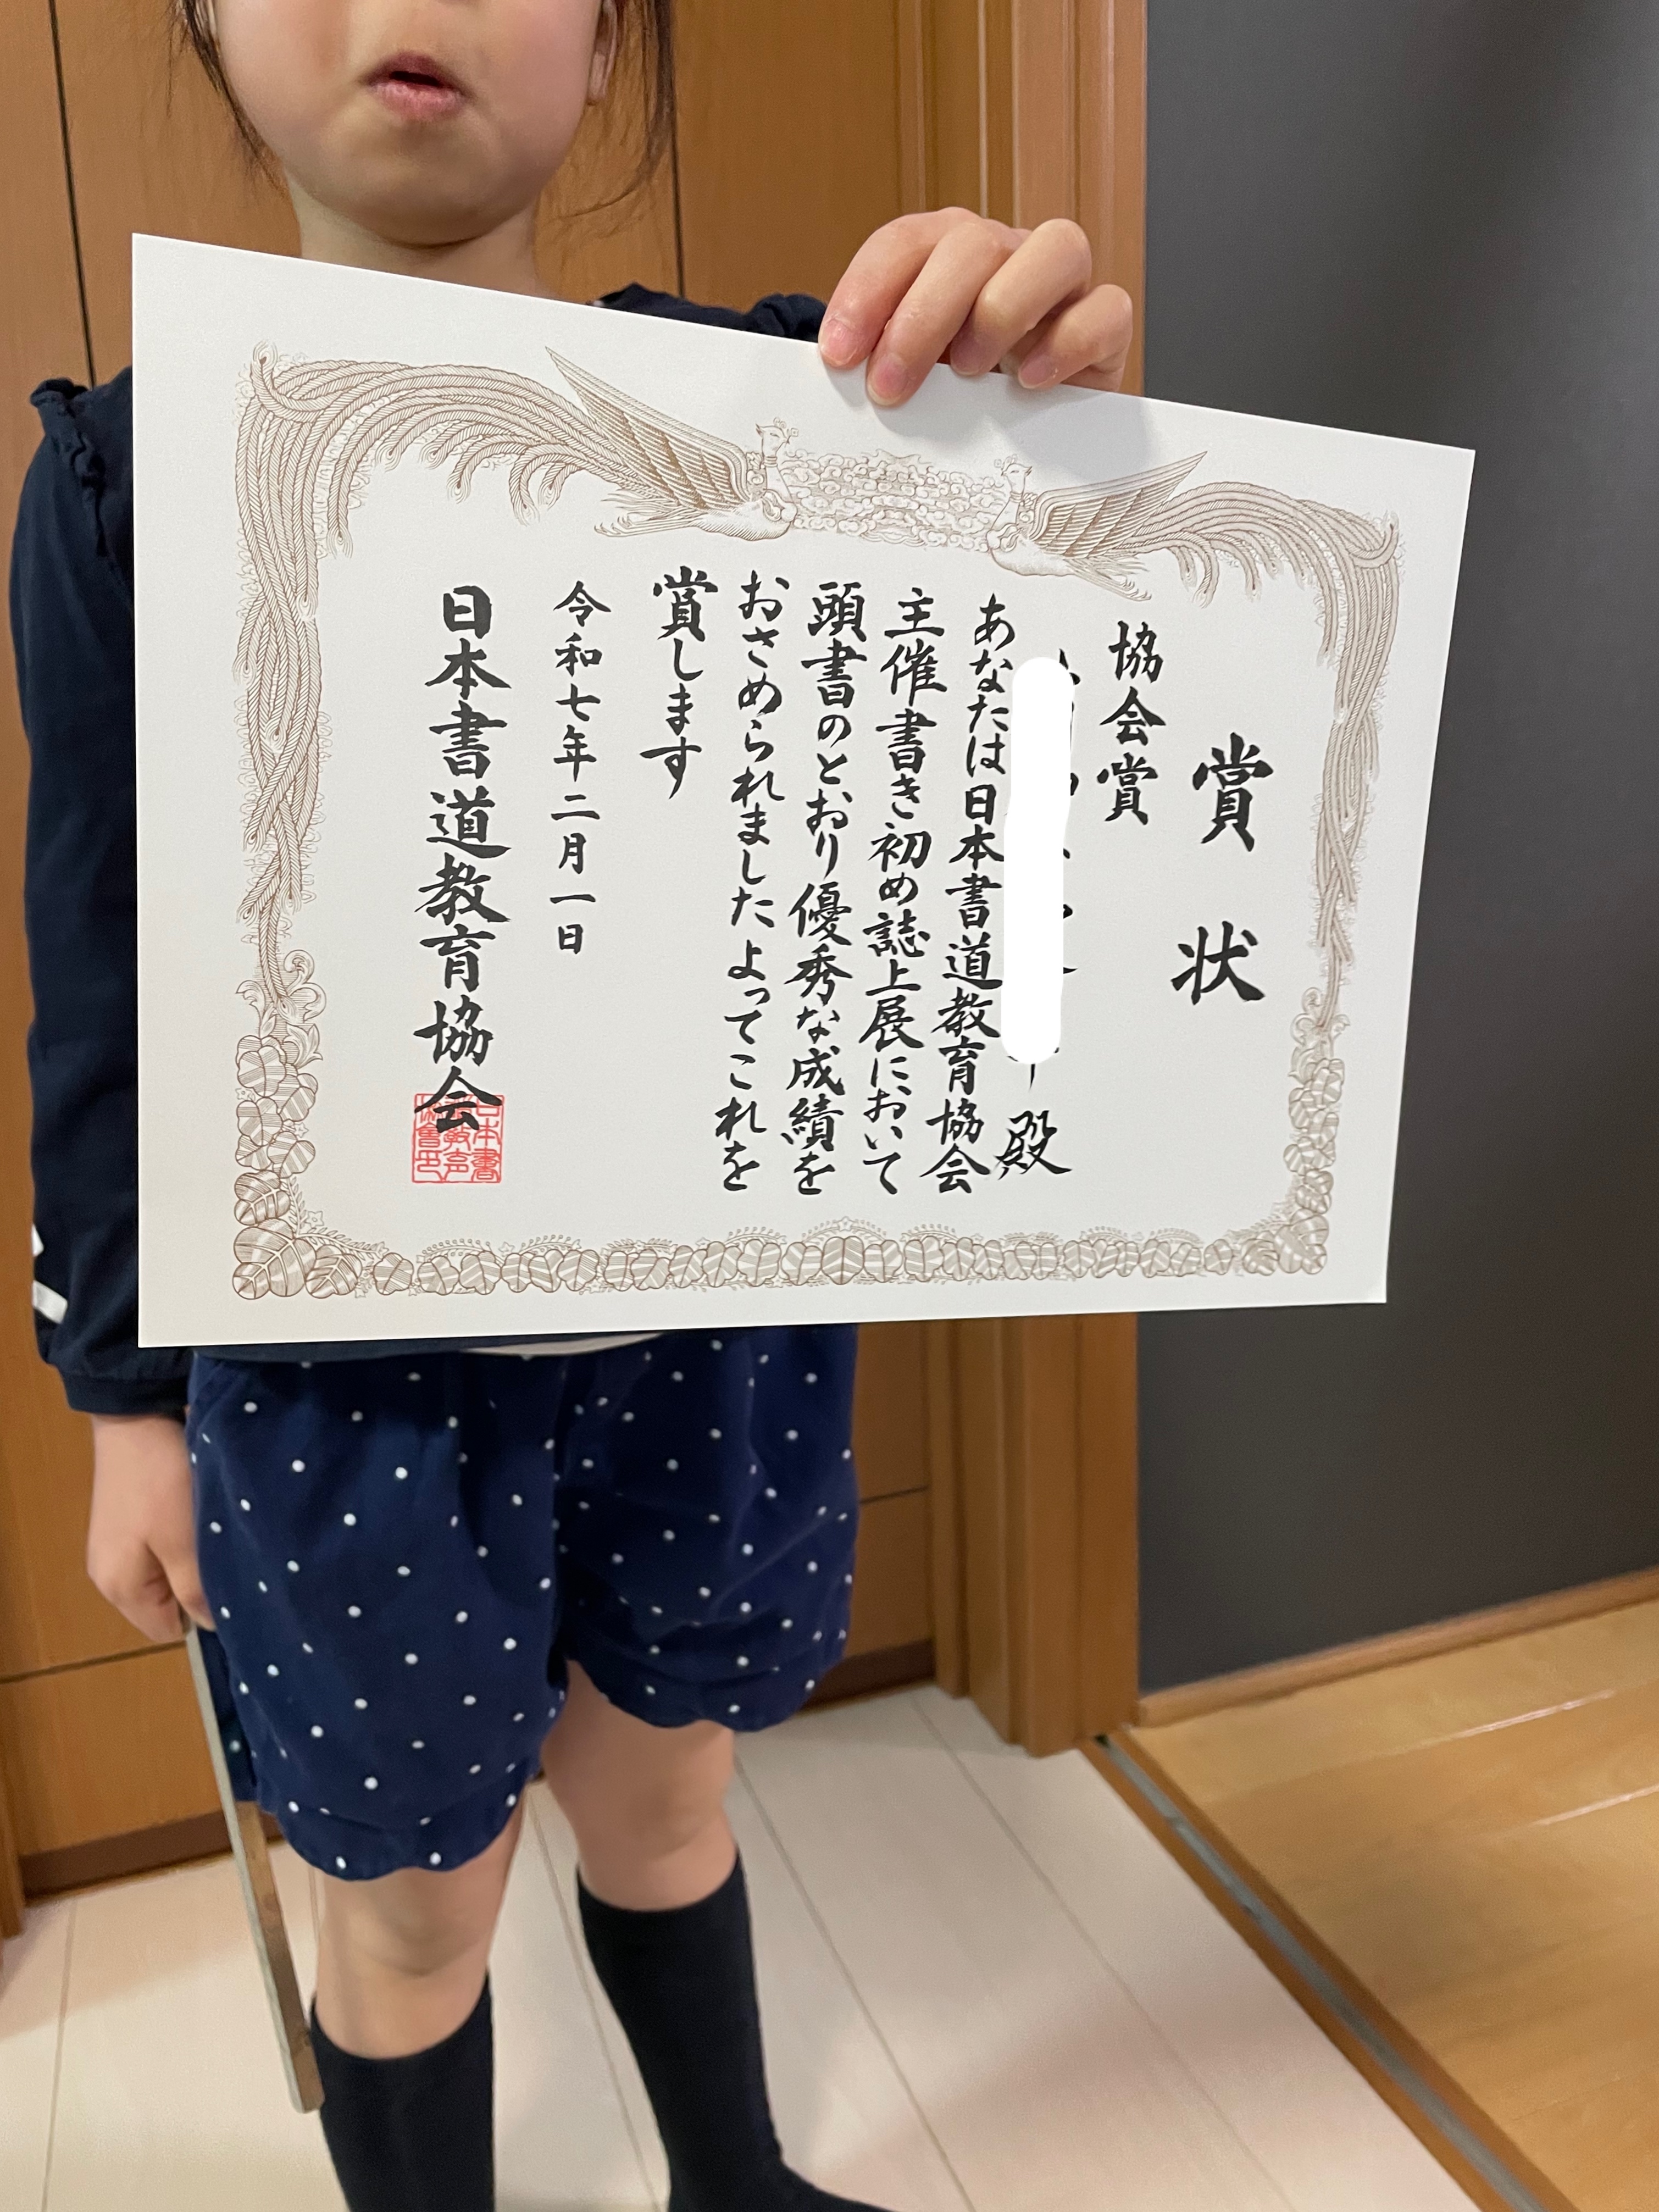 賞状
協会賞
殿
あなたは日本書道教育協会
主催書き初め誌上展において
頭書のとおり優秀な成績を
おさめられましたよってこれを
賞します
令和七年二月一日
日本書道教育協会